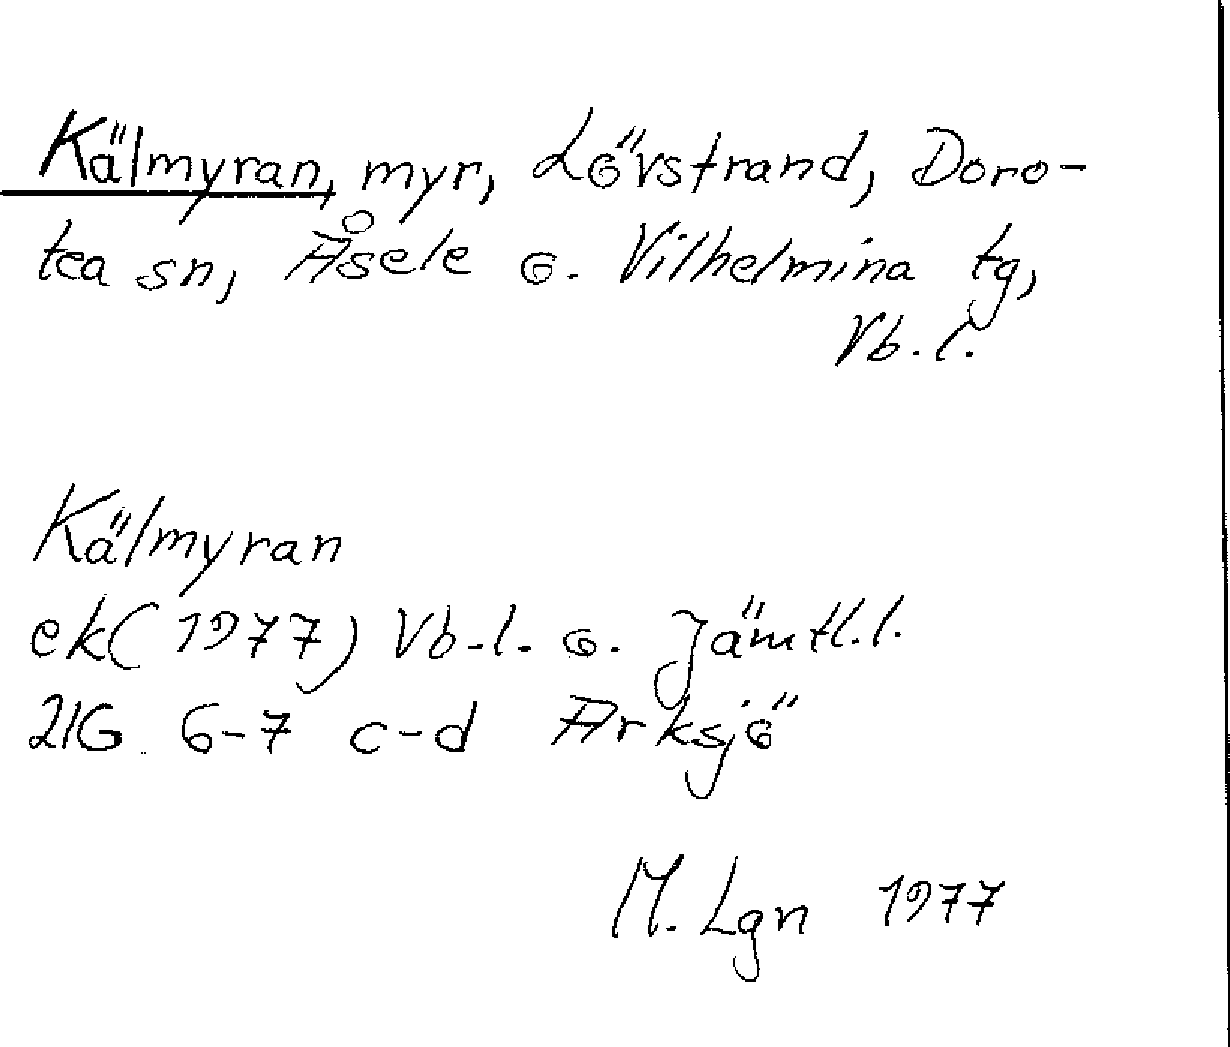 Kälmyran, myr, Lövstrand, Doro-
tea sn, Åsele o. Vilhelmina tg,
Vb.l.
Kälmyran
ek(1977) Vb.l. o. Jämtl.l.
21G 6-7 c-d Arksjö
M. Lgn 1977